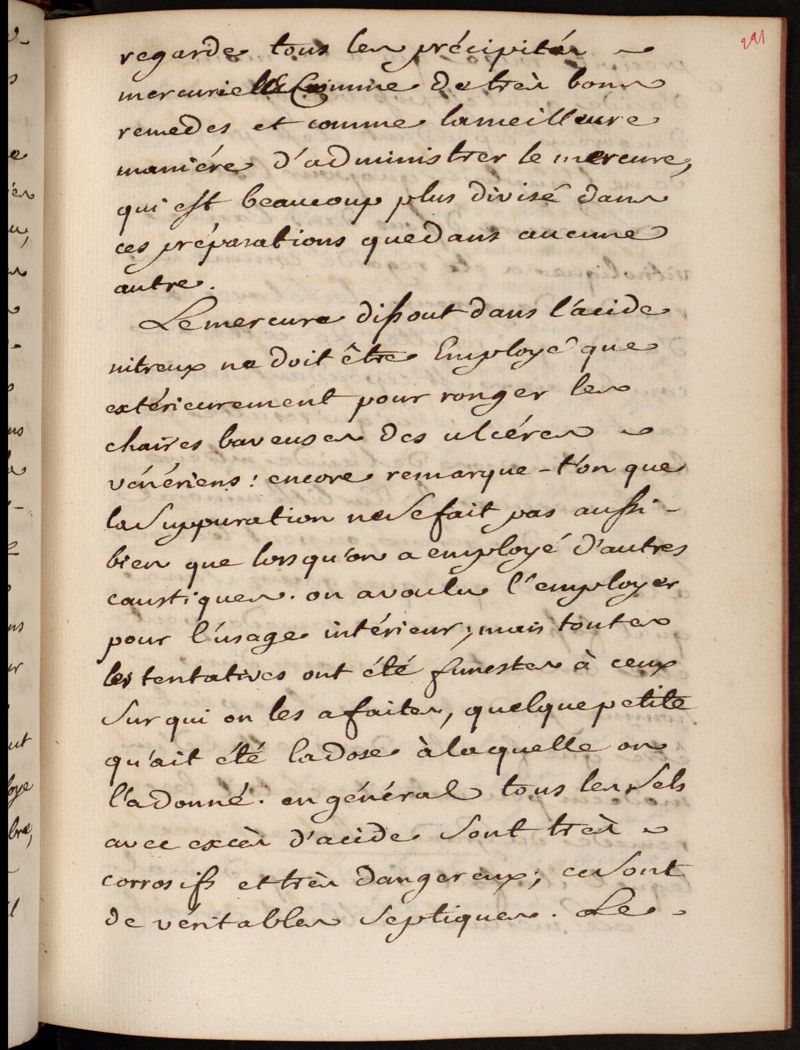 291
regarde tous les précipités
mercuriells Comme de très bons
remedes et comme la meilleure
maniére d'administrer le mercure,
qui est beaucoup plus divisé dans
ces préparations que dans aucune
autre.
Le mercure dissout dans l'acide
nitreux ne doit être Employé que
extérieurement pour ronger les
chaires baveuses des ulcéres
vénériens : encore remarque-t'on que
la Suppuration ne se fait pas aussi-
bien que lorsqu'on a employé d'autres
caustiques. on a voulu l'employer
pour l'usage intérieur, mais toutes
les tentatives ont été funestes à ceux
Sur qui on les a faites, quelque petite
qu'ait été la dose à laquelle on
l'a donné. en général tous les Sels
avec excès d'acide Sont très
corrosifs et très dangereux; ce Sont
de véritables Septiques. Le